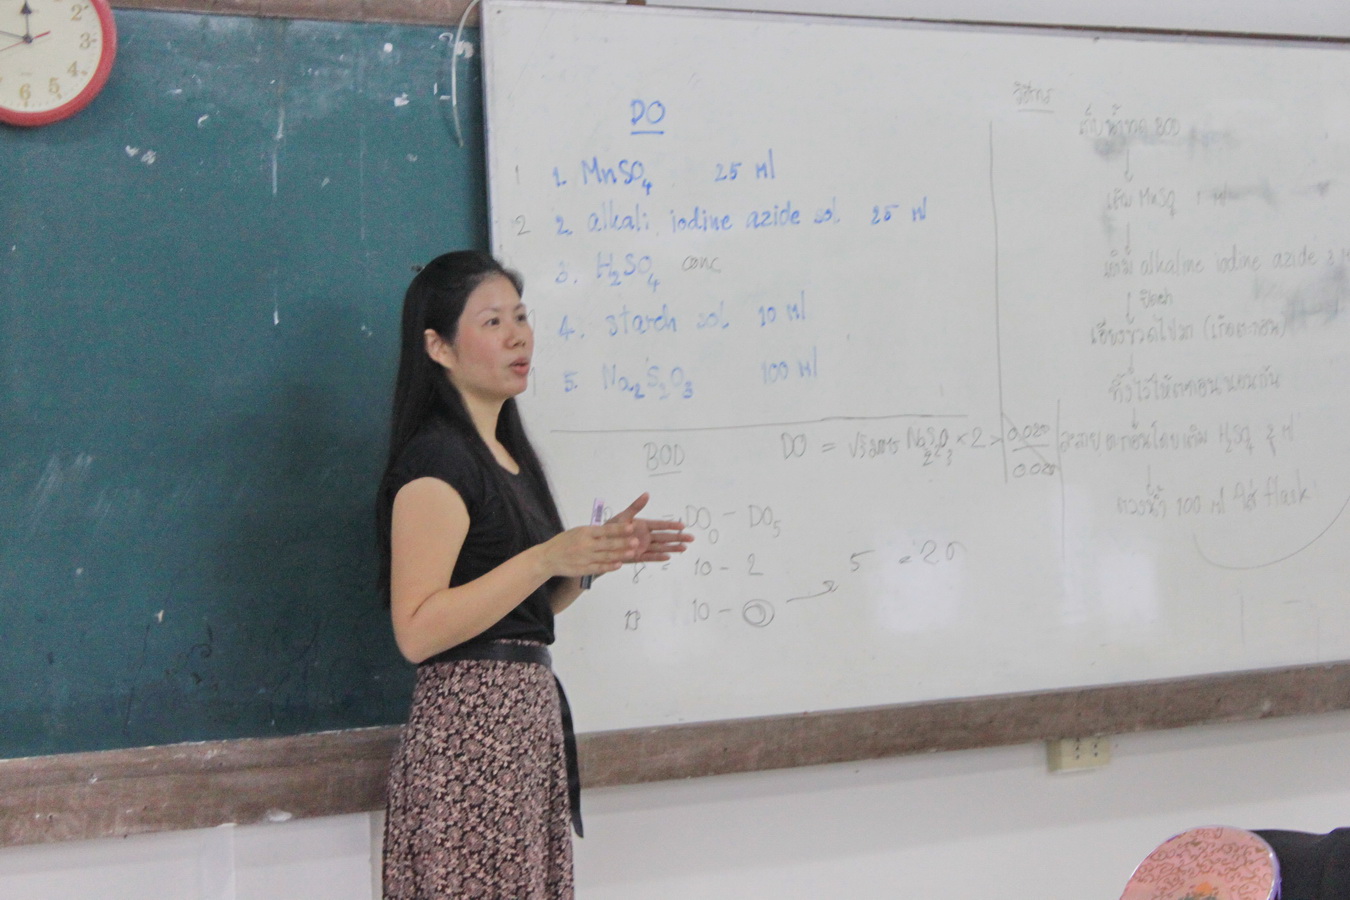 2
3
4
5
6
DO
1 1. MnSO₄ 25 ml
2 2. alkali iodine azide sol 25 ml
3. H₂SO₄ conc
4. starch sol 10 ml
5. Na₂S₂O₃ 100 ml
BOD
DO = ปริมาตร Na₂S₂O₃ × 2 0.020
0.025
= DO₀ - DO₅
8 = 10 - 2
10 - 0
5 = 20
วิธีการ
เก็บน้ำขวด BOD
เติม MnSO₄ 1 ml
เติม alkaline iodine azide
ปิดฝา
เอียงขวดไปมา (เกิดตะกอน)
ทิ้งไว้ให้ตกตะกอนนอนก้น
ละลายตะกอนโดยเติม H₂SO₄ 2 ml
ตวงน้ำ 100 ml ใส่ flask